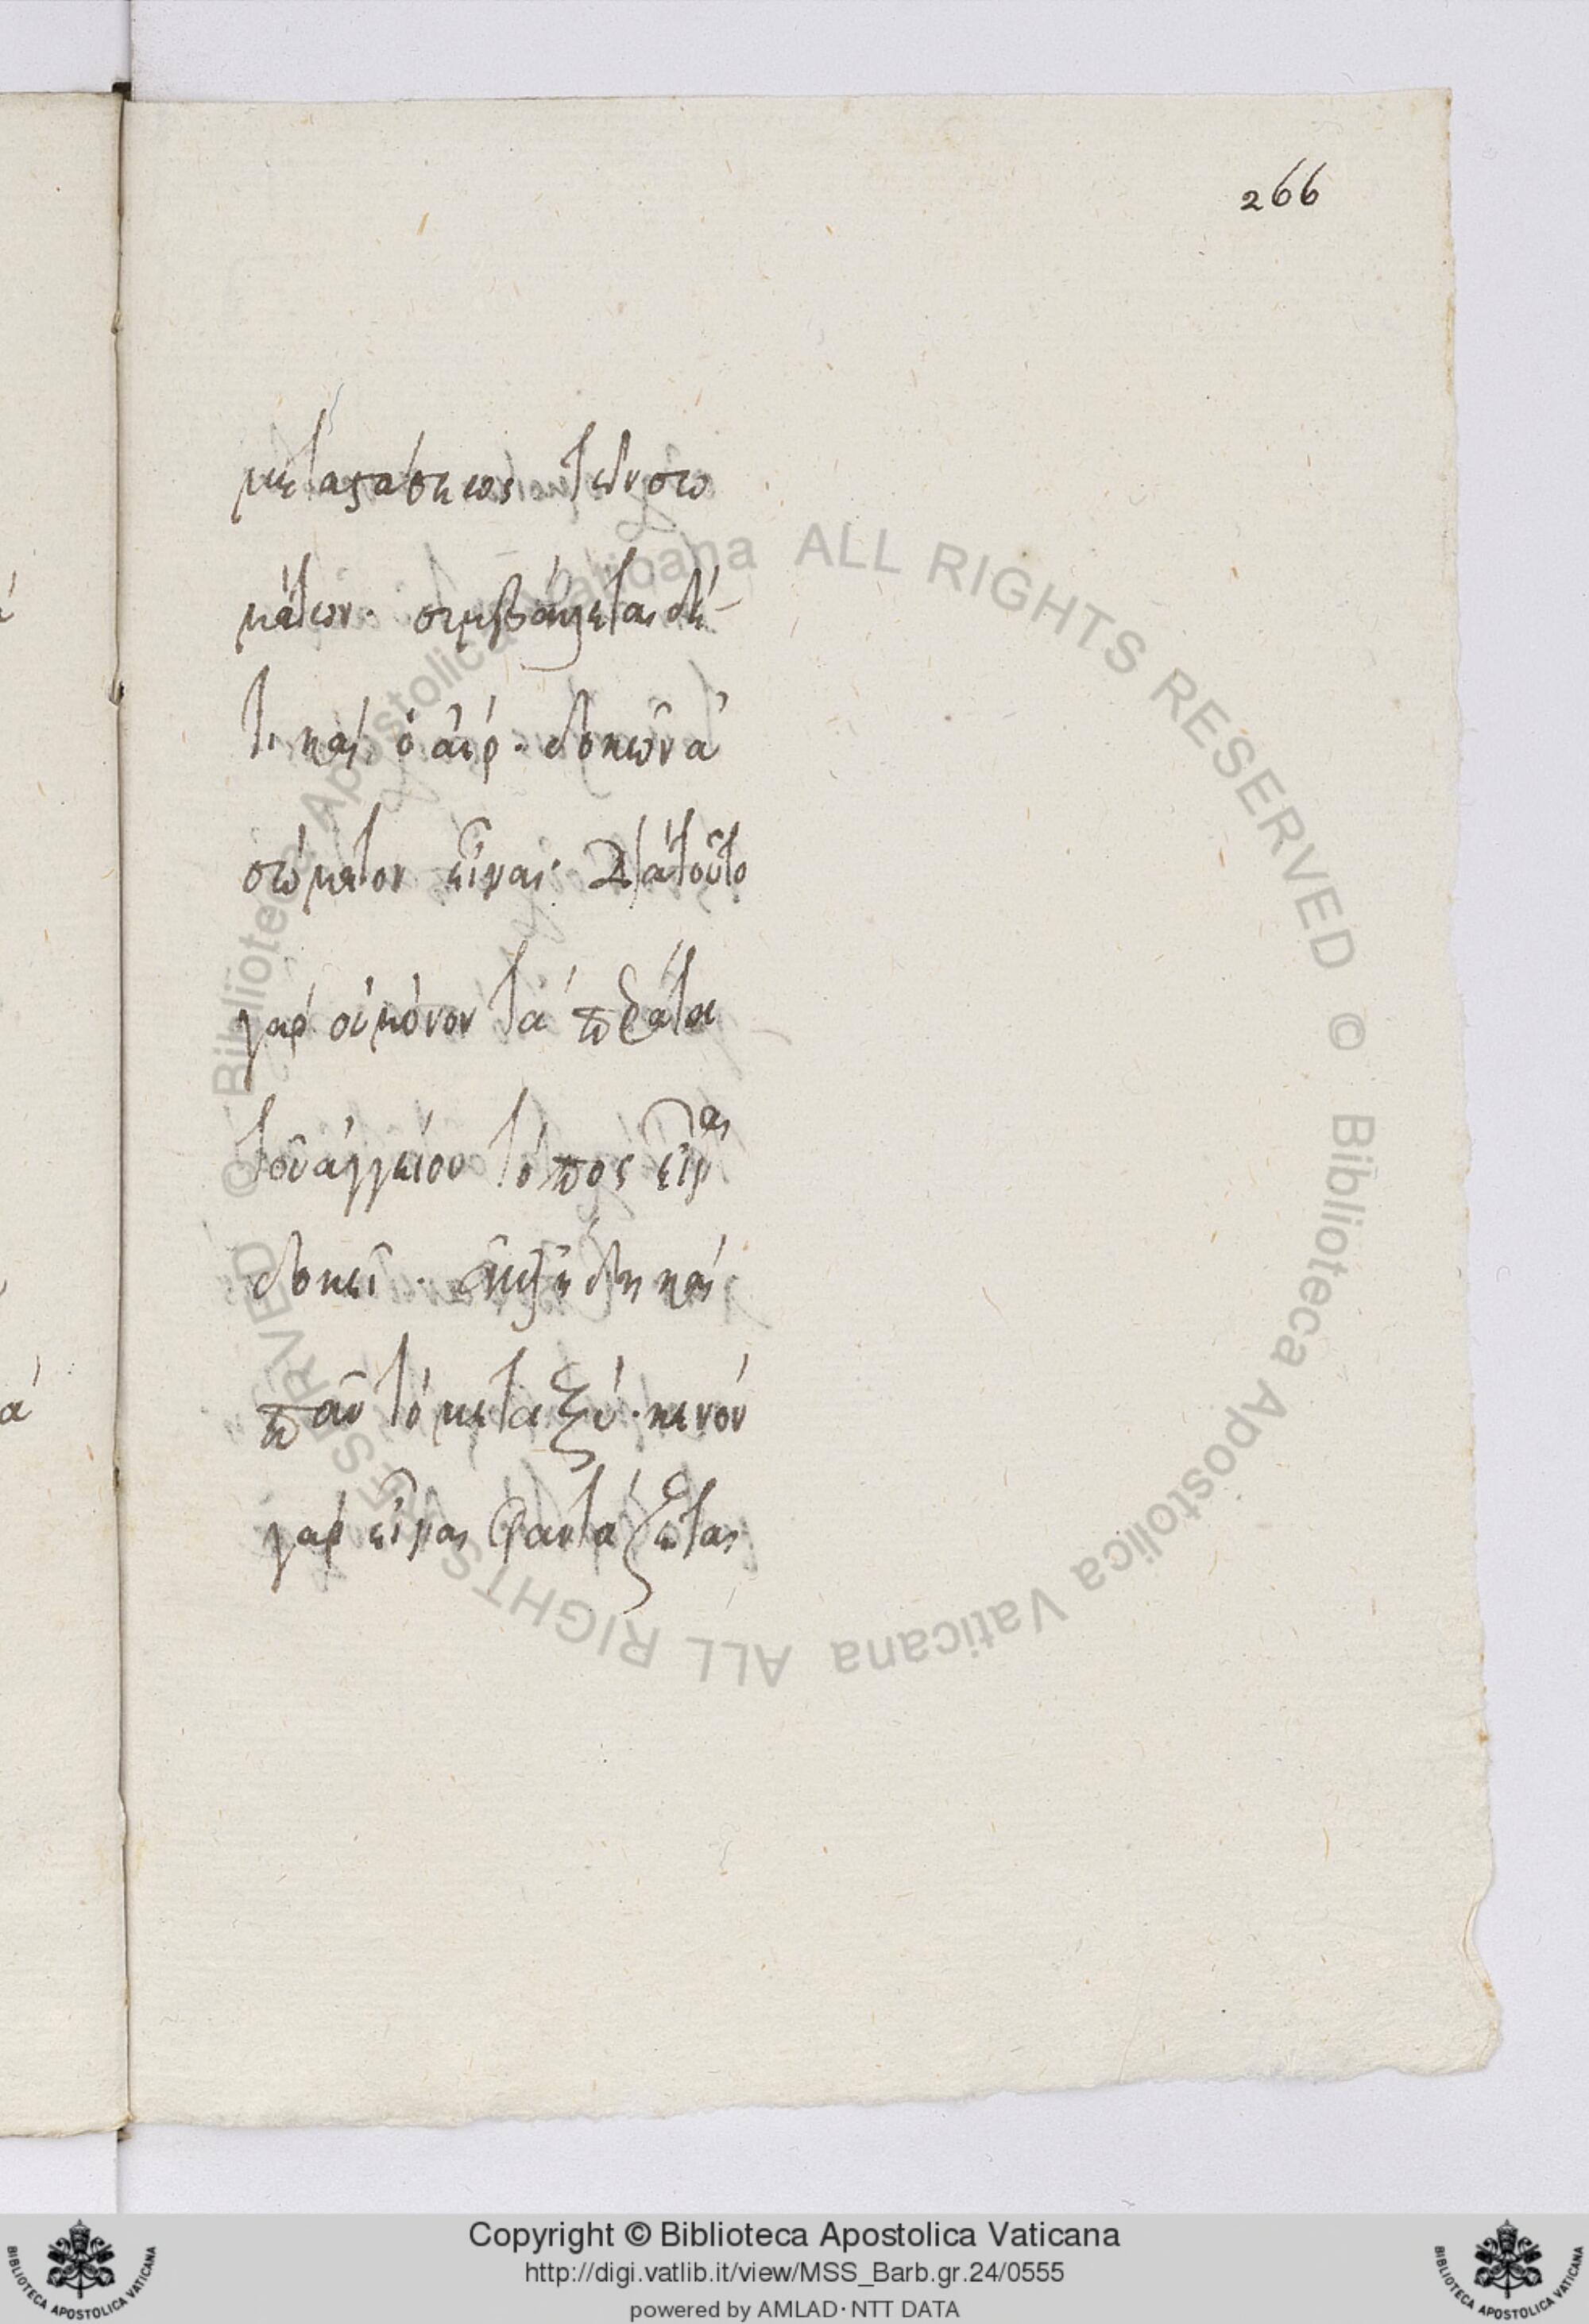 266
μεταστάσεως τῶν σω
μάτων· συμβάλλεται δέ
τι καὶ ὁ ἀὴρ· δοκῶν ἀ
σώματον εἶναι· διὰ τοῦτο
γὰρ οὐ μόνον τὰ πέρατα
τοῦ ἀγγείου τόπος εἶναι
δοκεῖ· ἀλλ' ἤδη καὶ
πᾶν τὸ μεταξύ· κενὸν
γὰρ εἶναι φαντάζεται
© Biblioteca Apostolica Vaticana ALL RIGHTS RESERVED © Biblioteca Apostolica Vaticana ALL RIGHTS RESERVED
Copyright © Biblioteca Apostolica Vaticana
http://digi.vatlib.it/view/MSS_Barb.gr.24/0555
powered by AMLAD·NTT DATA
BIBLIOTECA APOSTOLICA VATICANA
BIBLIOTECA APOSTOLICA VATICANA